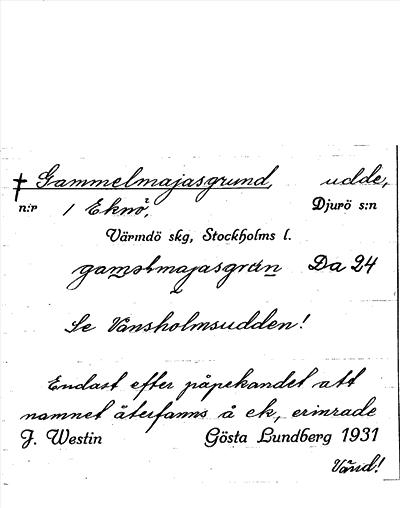 † Gammelmajasgrund, udde,
n:r 1 Eknö, Djurö s:n
Värmdö skg, Stockholms l.
gaməlmajasgrún Da 24
Se Vånsholmsudden!
Endast efter påpekandet att
namnet återfanns å ek, erinrade
J. Westin Gösta Lundberg 1931
Vänd!